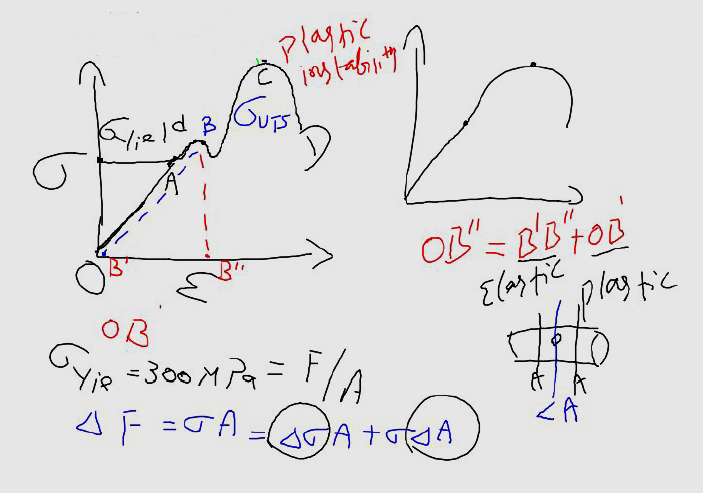 Plastic
instability
C
σyield
B
σUTS
D
σ
A
O
B'
ε
B"
OB" = B'B" + OB'
Elastic
Plastic
OB'
σyie = 300 MPa = F/A
A
A
<A
Δ F = σA = ΔσA + σΔA